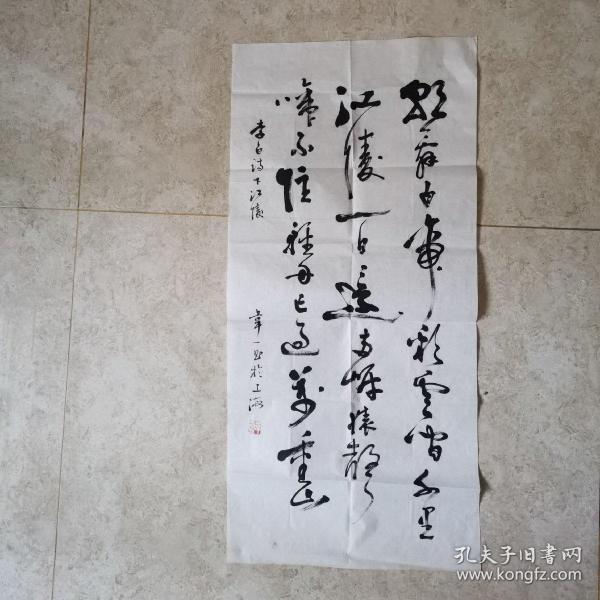 朝辞白帝彩雲間千里
江陵一日還两岸猿聲
啼不住輕舟已過萬重山
李白诗下江陵
韋一书於上海
孔夫子旧书网
www.kongfz.com